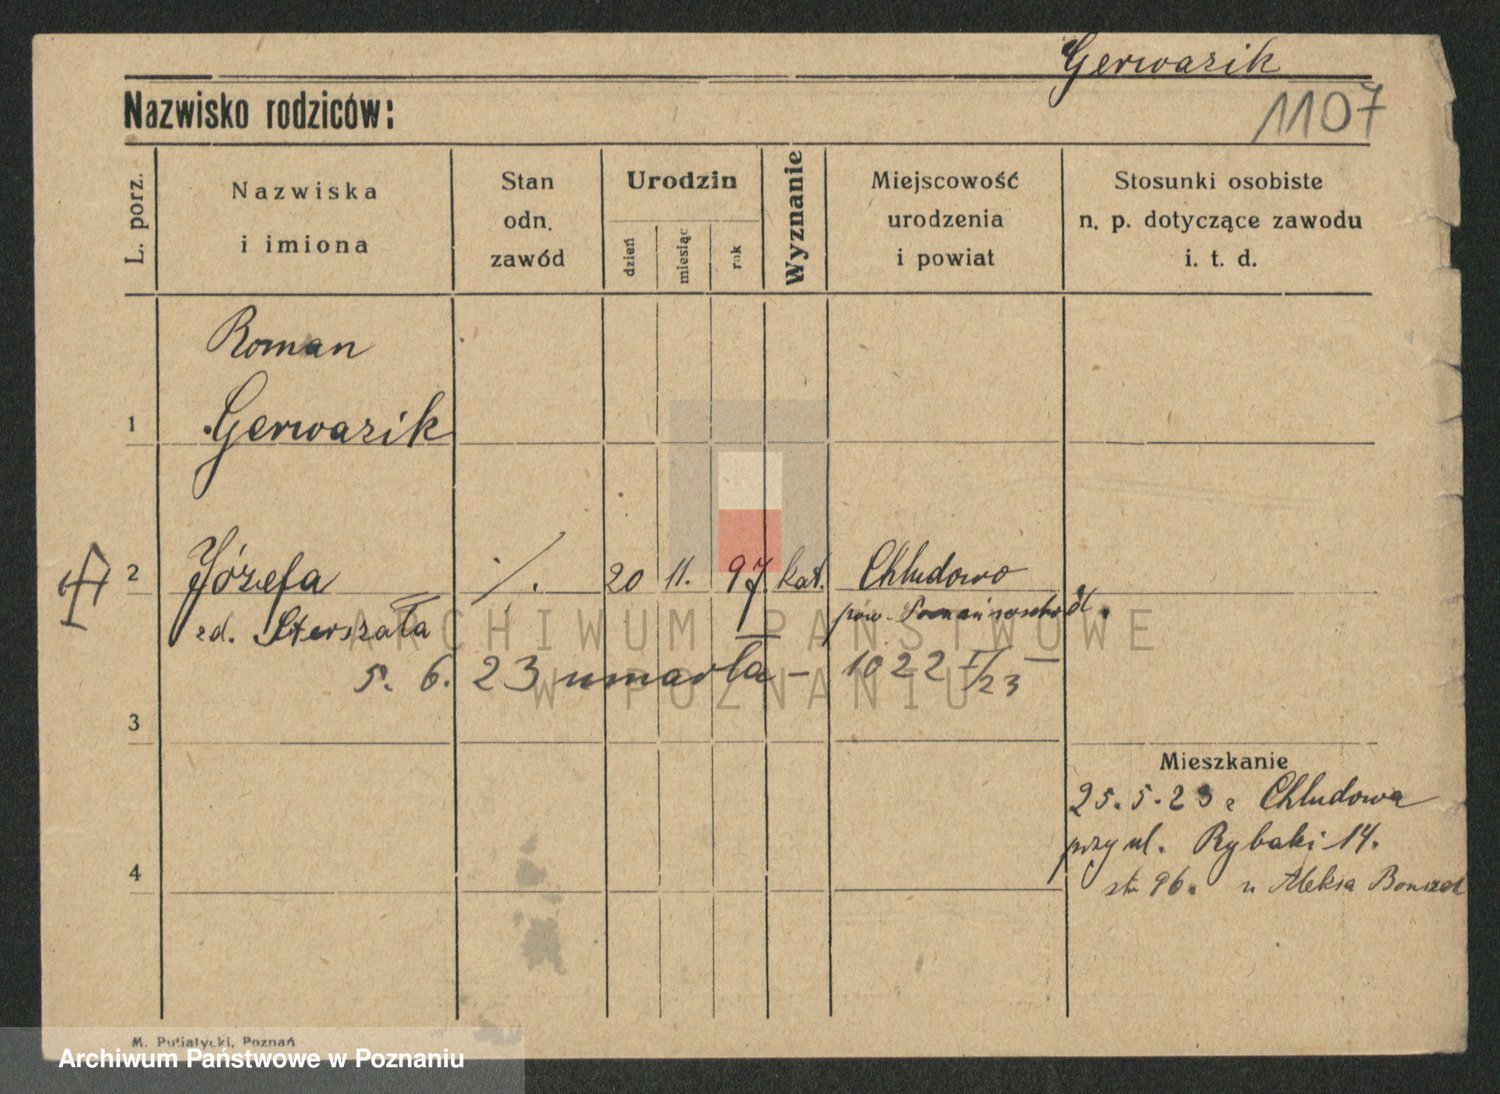 Gerwazik
1107
Nazwisko rodziców:
L. porz.
Nazwiska
i imiona
Stan
odn.
zawód
Urodzin
dzień
miesiąc
rok
Wyznanie
Miejscowość
urodzenia
i powiat
Stosunki osobiste
n. p. dotyczące zawodu
i. t. d.
Roman
1 Gerwazik
2 Józefa ./. 20 11. 97. kat. Chludowo
zd. pow.
5. 6. 23 umarła – 1022 I/23 –
3
Mieszkanie
25.5.23 z Chludowa
przy ul. Rybaki 14.
4
str 96. u Aleksa
M. Putiatycki, Poznań
ARCHIWUM PAŃSTWOWE
W POZNANIU
Archiwum Państwowe w Poznaniu